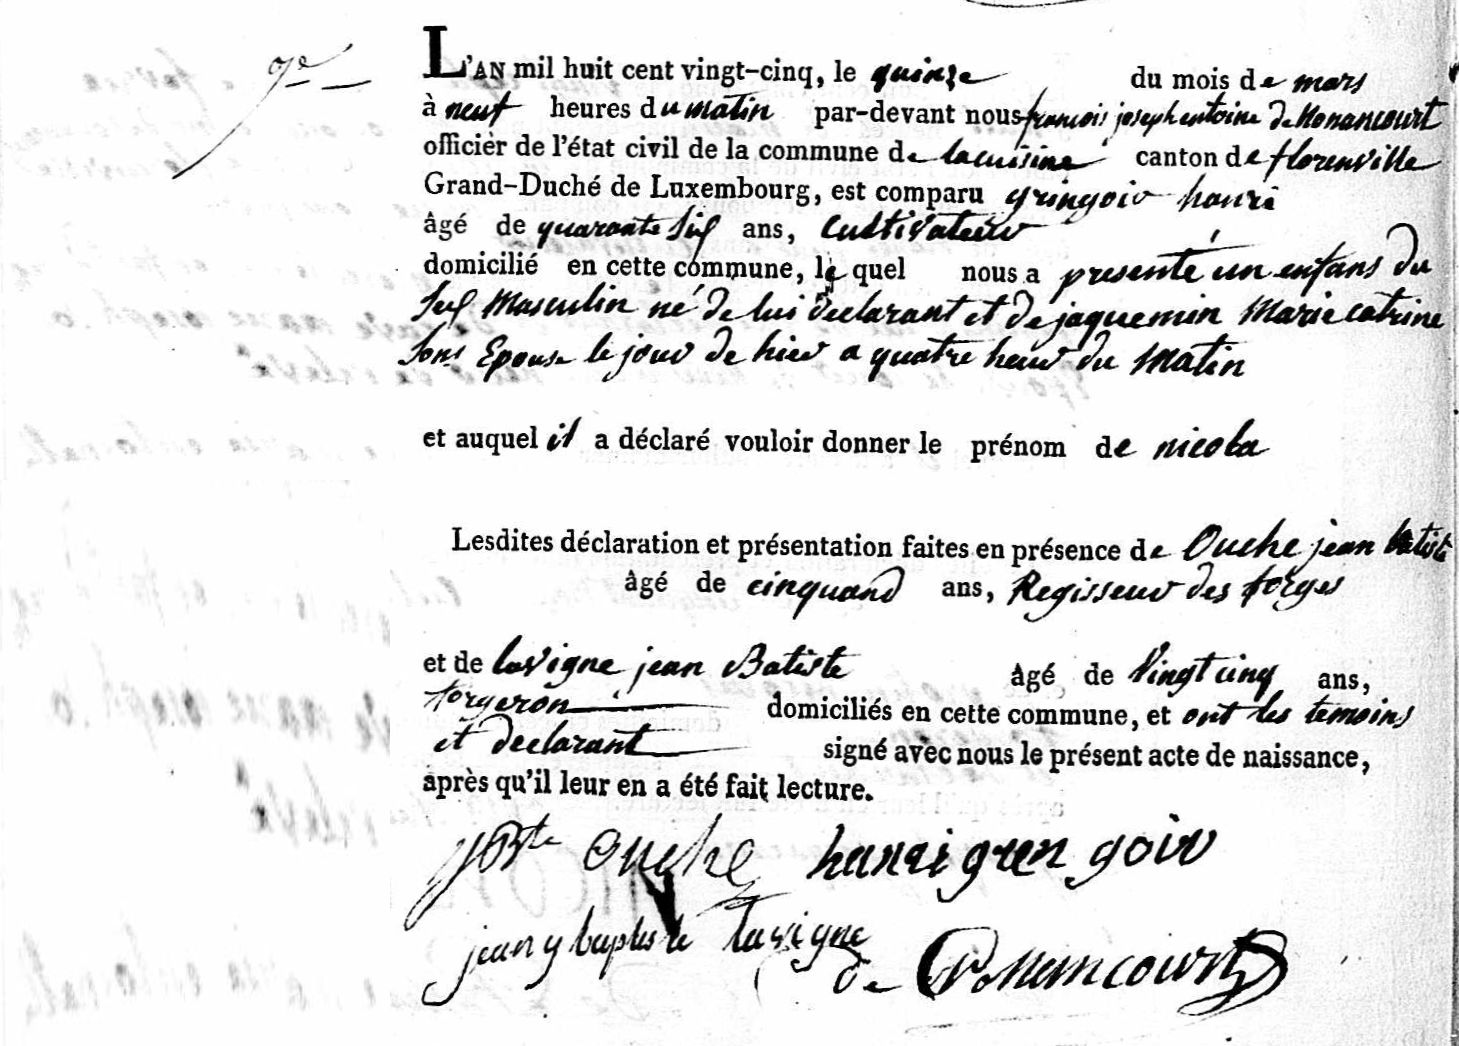 9e
L'AN mil huit cent vingt-cinq, le quinze du mois de mars
à neuf heures du matin par-devant nous francois joseph entoine de
officier de l'état civil de la commune de lacuisine canton de florenville
Grand-Duché de Luxembourg, est comparu gringoir hanri
âgé de quarante six ans, cultivateur
domicilié en cette commune, le quel nous a presenté un enfans du
sex masculin né de lui declarant et de jaquemin Marie catrine
sons Epouse le jour de hier a quatre heur du matin
et auquel il a déclaré vouloir donner le prénom de nicola
Lesdites déclaration et présentation faites en présence de Ouche jean batiste
âgé de cinquand ans, Regisseur des forges
et de lavigne jean Batiste âgé de vingt cinq ans,
forgeron domiciliés en cette commune, et ont les temoins
et declarant signé avec nous le présent acte de naissance,
après qu'il leur en a été fait lecture.
ouche hanri gren goir
jean baptiste lavigne
de